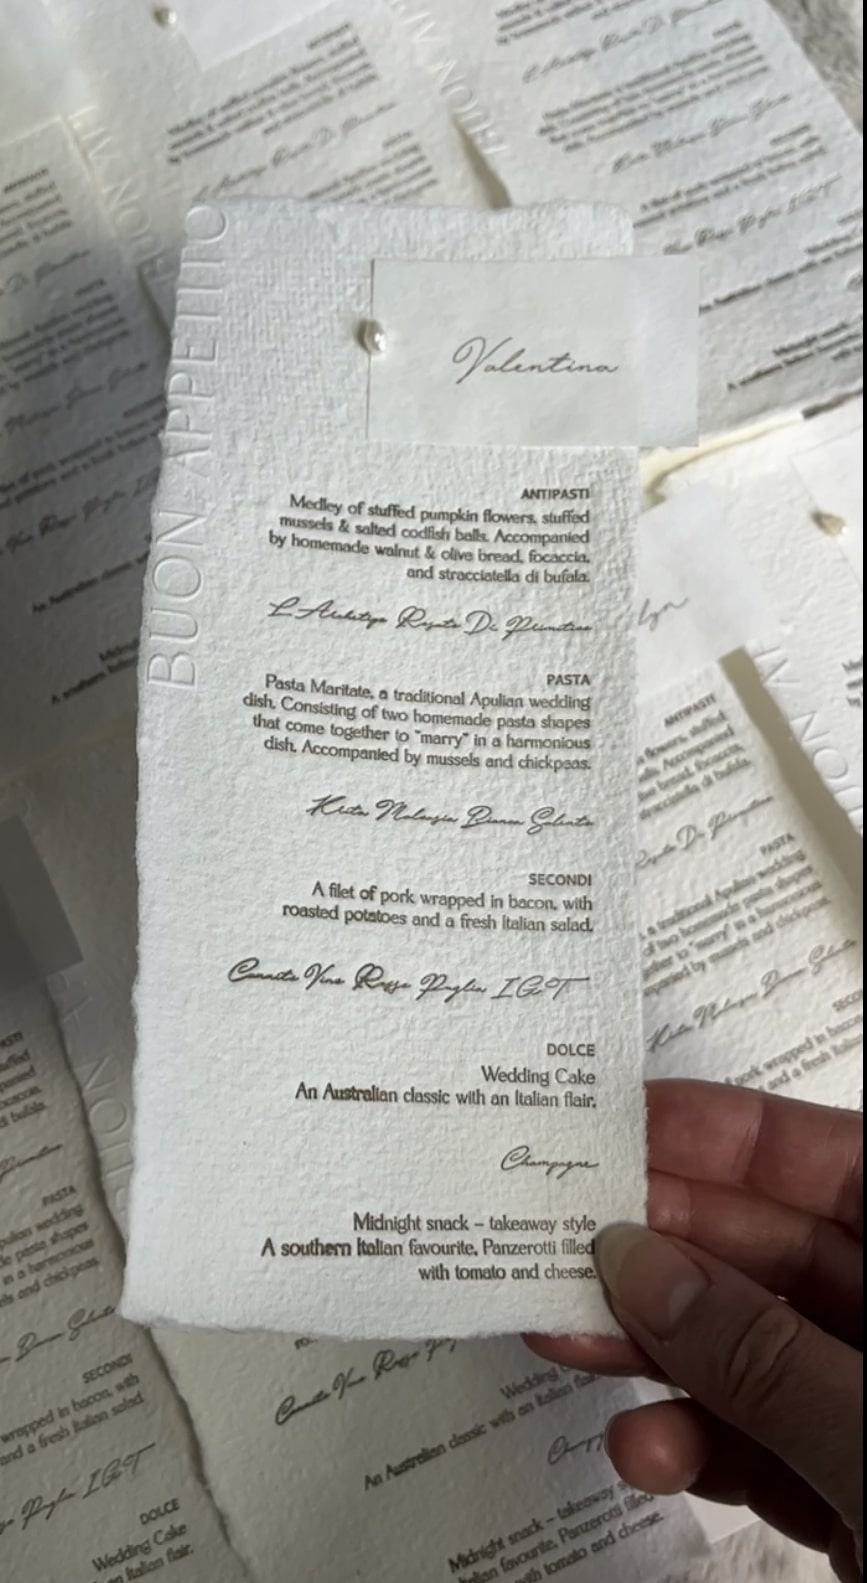 BUON APPETITO
Valentina
ANTIPASTI
Medley of stuffed pumpkin flowers, stuffed
mussels & salted codfish balls. Accompanied
by homemade walnut & olive bread, focaccia,
and stracciatella di bufala.
L'Archetipo Rosato Di Primitivo
PASTA
Pasta Maritate, a traditional Apulian wedding
dish. Consisting of two homemade pasta shapes
that come together to "marry" in a harmonious
dish. Accompanied by mussels and chickpeas.
Malvasia Bianca Salento
SECONDI
A filet of pork wrapped in bacon, with
roasted potatoes and a fresh Italian salad.
Vino Rosso Puglia IGT
DOLCE
Wedding Cake
An Australian classic with an Italian flair.
Champagne
Midnight snack – takeaway style
A southern Italian favourite, Panzerotti filled
with tomato and cheese.